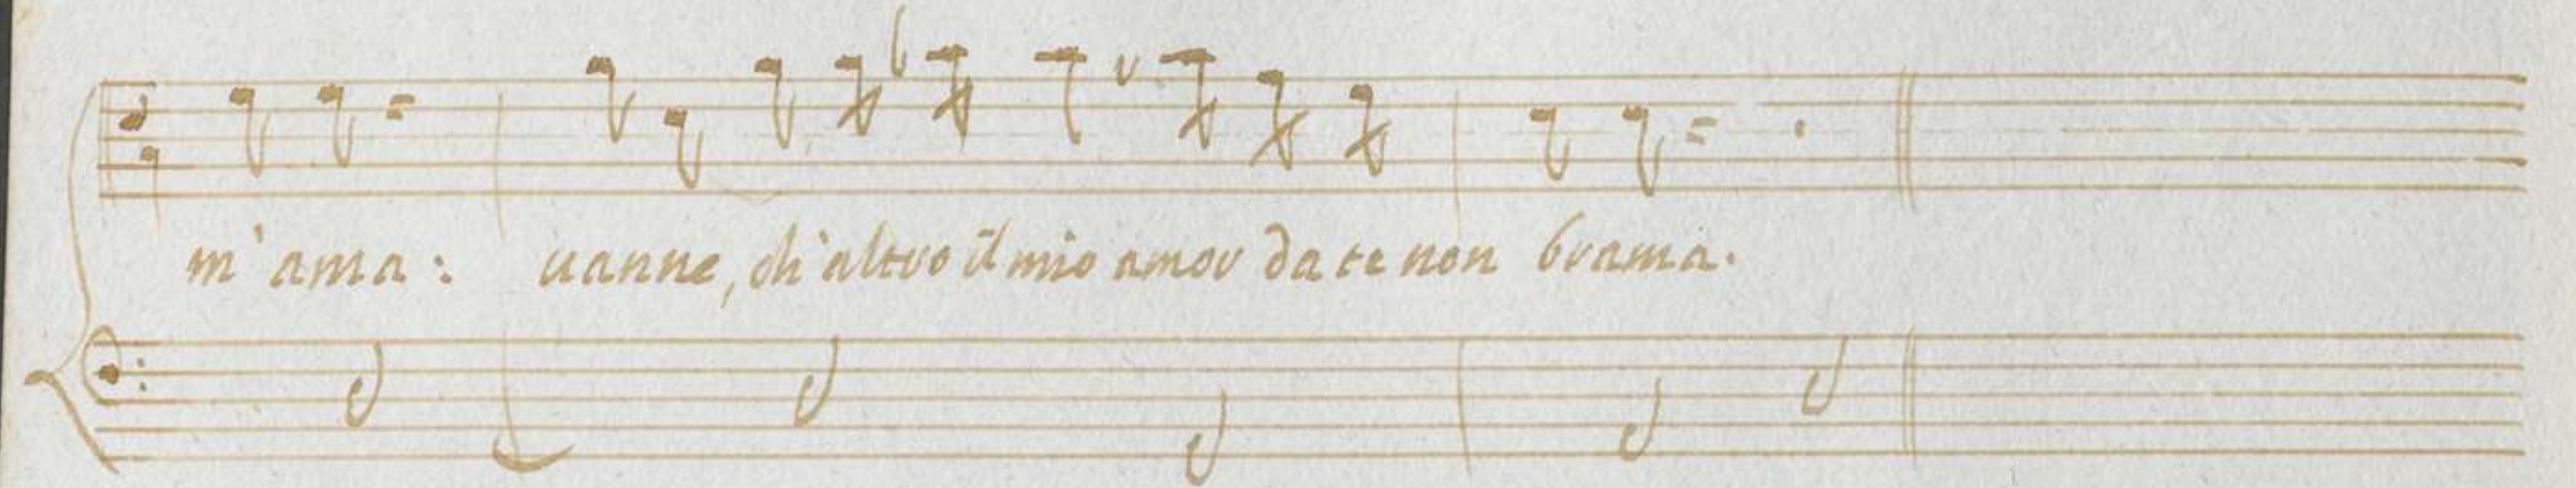 m'ama: uanne, ch'altro il mio amor da te non brama.